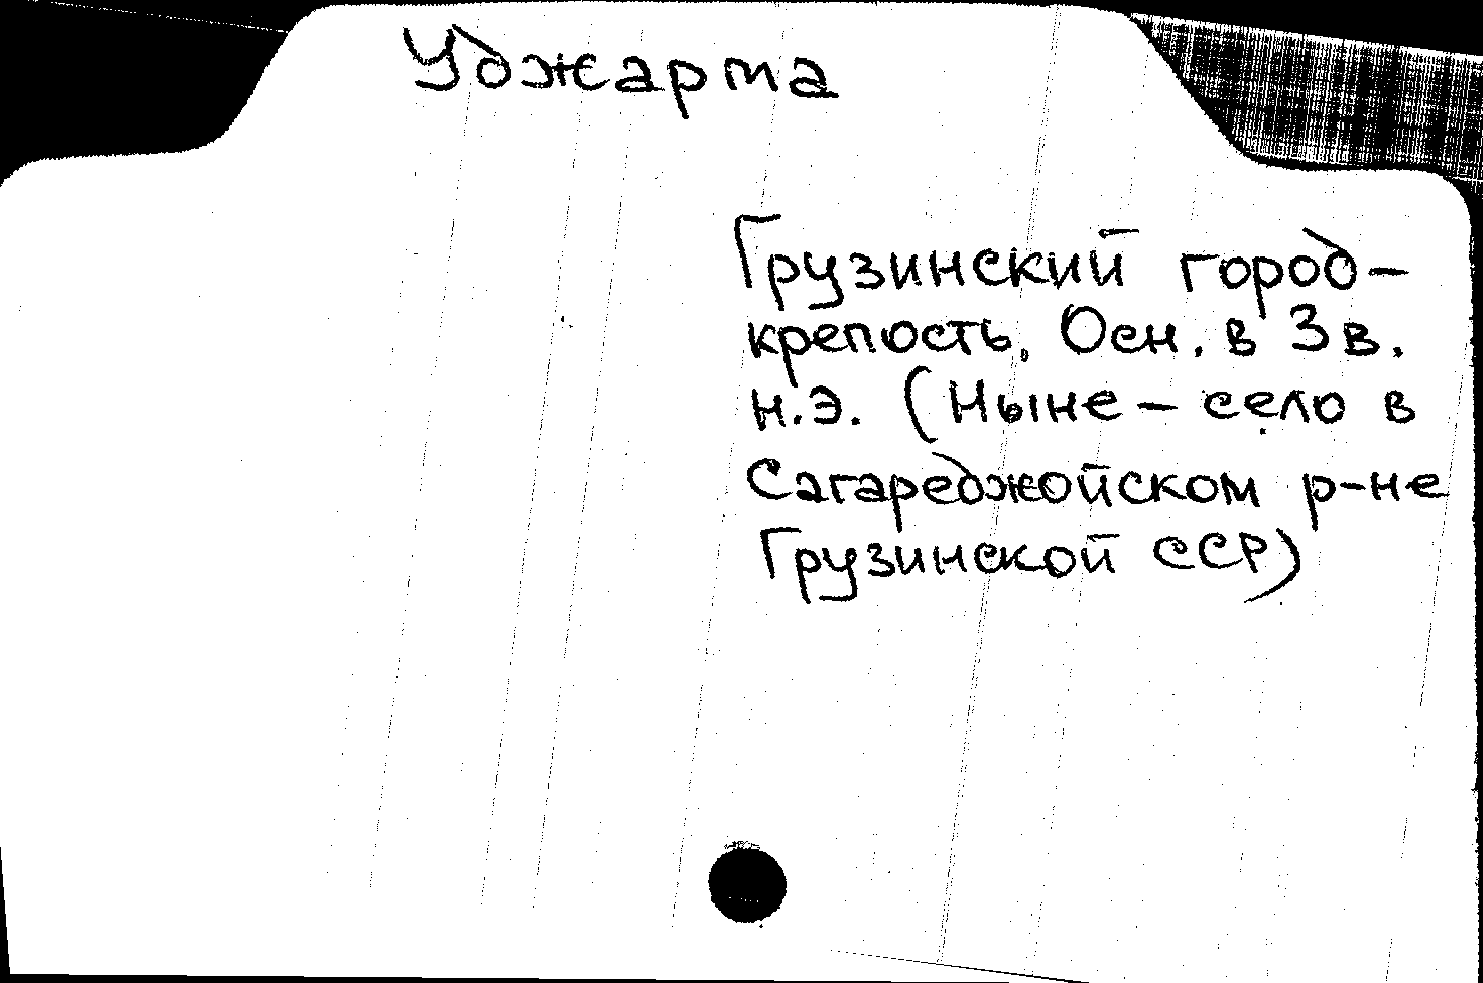 Уджарта
Грузинский город-
крепость. Осн. в 3 в.
н.э. (Ныне – село в
Сагареджойском р-не
Грузинской ССР)